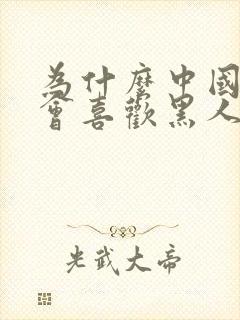 為什麼中國
會喜歡黑人
光武大帝